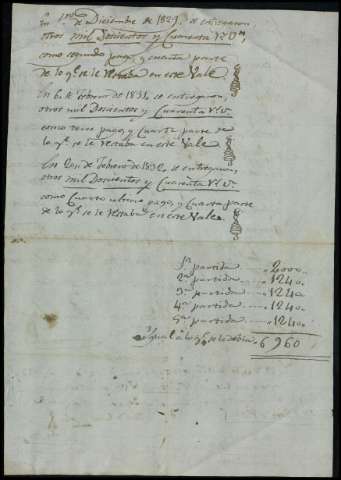 En pro. de Diciembre de 1829, se entregaron
otros mil Doscientos y Cuarenta Rs. Vn.,
como segundo pago, y cuarta parte
de lo qe. se le restaba en este Vale
En 6 de Febrero de 1831, se entregaron,
otros mil Doscientos y Cuarenta Rs. Vn.
como tercer pago, y Cuarta parte de
lo qe. se le restaba en este Vale
En de Febrero de 1832, se entregaron,
otros mil Doscientos y Cuarenta Rs. Vn.
como Cuarto ultimo pago, y Cuarta parte
de lo qe. se le restaba en este Vale.
1a. partida .. 2000.
2a. partida .... 1240.
3a. partida .... 1240
4a. partida .... 1240
5a. partida .... 1240.
Ygual a lo qe. se le debia. 6960